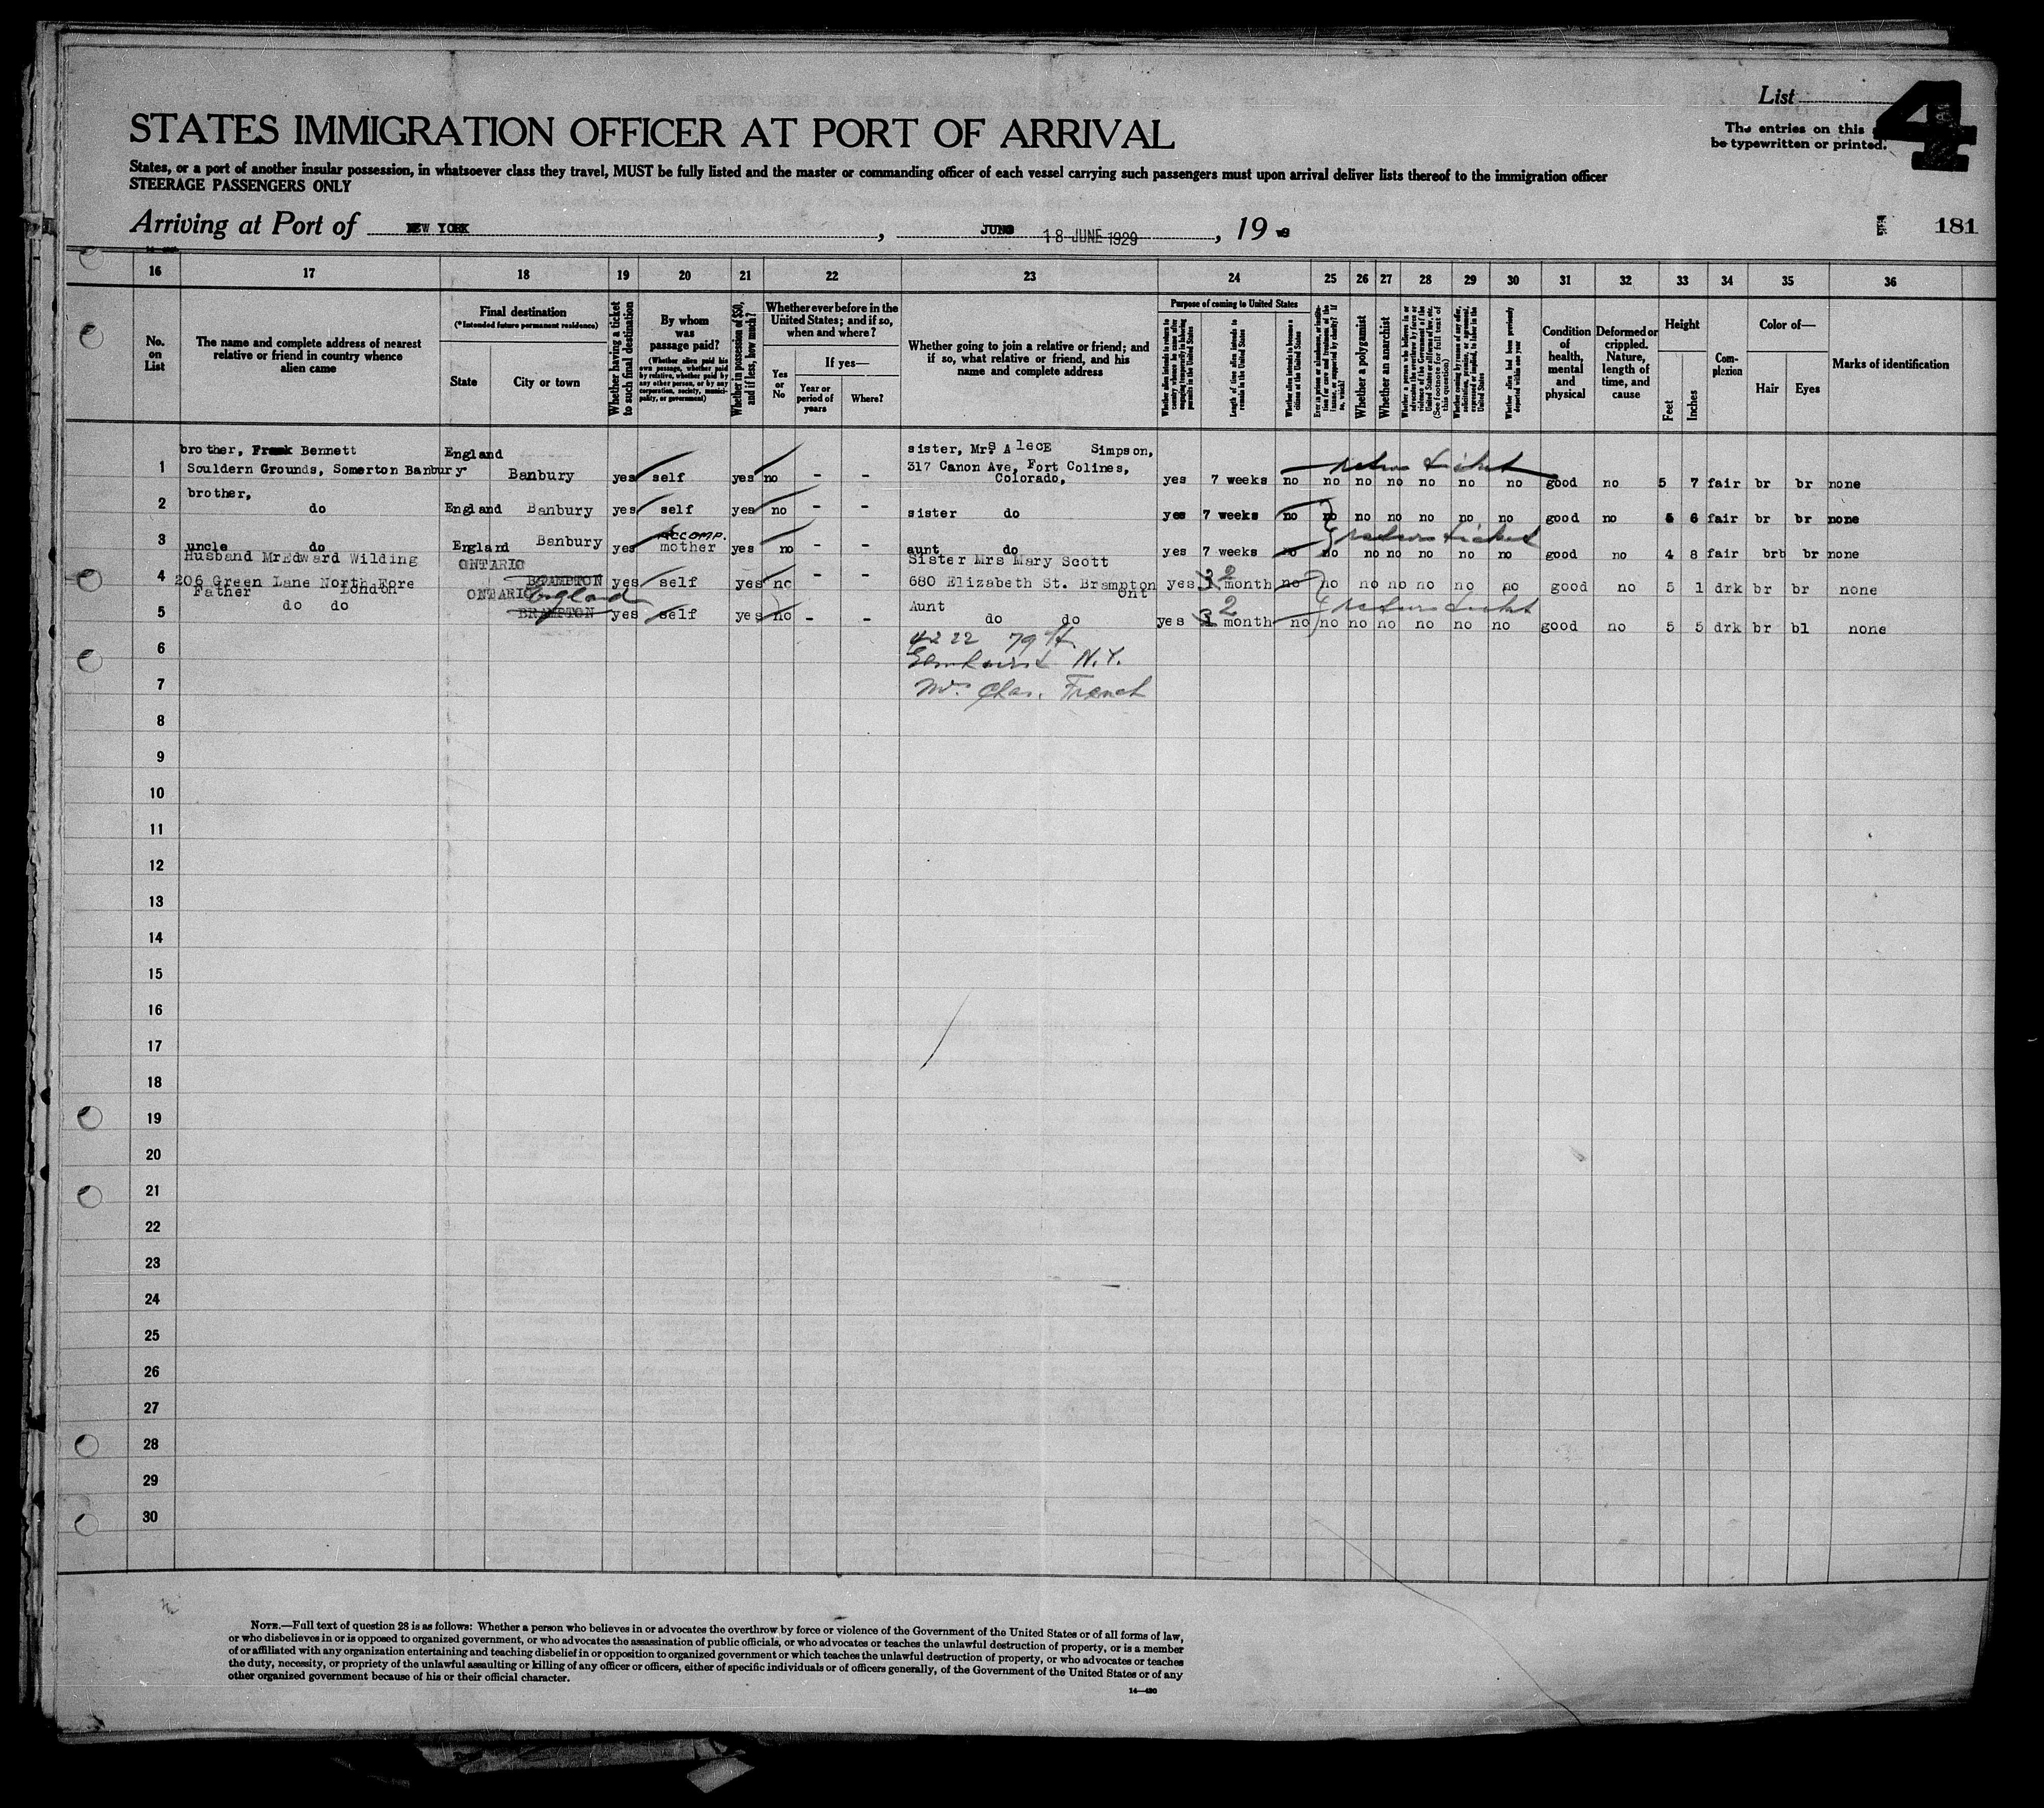 List 4
STATES IMMIGRATION OFFICER AT PORT OF ARRIVAL
The entries on this
be typewritten or printed.
States, or a port of another insular possession, in whatsoever class they travel, MUST be fully listed and the master or commanding officer of each vessel carrying such passengers must upon arrival deliver lists thereof to the immigration officer
STEERAGE PASSENGERS ONLY
Arriving at Port of NEW YORK, JUNE 18 JUNE 1929, 19
181
16 17 18 19 20 21 22 23 24 25 26 27 28 29 30 31 32 33 34 35 36
No. on List
The name and complete address of nearest relative or friend in country whence alien came
Final destination
(*Intended future permanent residence)
State
City or town
Whether having a ticket to such final destination
By whom was passage paid?
(Whether alien paid his own passage, whether paid by relative, whether paid by any other person, or by any corporation, society, municipality, or government)
Whether in possession of $50, and if less, how much?
Whether ever before in the United States; and if so, when and where?
Yes or No
If yes—
Year or period of years
Where?
Whether going to join a relative or friend; and if so, what relative or friend, and his name and complete address
Purpose of coming to United States
Whether alien intends to return to country whence he came after engaging temporarily in laboring pursuits in the United States
Length of time alien intends to remain in the United States
Whether alien intends to become a citizen of the United States
Whether a polygamist
Whether an anarchist
Whether alien had been previously deported within one year
Condition of health, mental and physical
Deformed or crippled. Nature, length of time, and cause
Height
Feet
Inches
Complexion
Color of—
Hair
Eyes
Marks of identification
brother, Frank Bennett England sister, Mrs Alece Simpson,
1 Souldern Grounds, Somerton Banbury Banbury yes self yes no - - 317 Canon Ave, Fort Colines, Colorado, yes 7 weeks no return ticket no no no no no no good no 5 7 fair br br none
2 brother, do England Banbury yes self yes no - - sister do yes 7 weeks no no no no no no no good no 5 6 fair br br none
3 uncle do England Banbury yes Accomp. mother yes no - - aunt do yes 7 weeks no return ticket no no no no no no good no 4 8 fair brb br none
Husband Mr Edward Wilding ONTARIO Sister Mrs Mary Scott
4 206 Green Lane North Fore London BRAMPTON yes self yes no - - 680 Elizabeth St. Brampton Ont yes 2 month no no no no no no no good no 5 1 drk br br none
5 Father do do ONTARIO England BRAMPTON yes self yes no - - Aunt do do yes 2 month no return ticket no no no no no no good no 5 5 drk br bl none
6 4222 79 St.
Elmhurst N.Y.
7 Mr. Chas. French
8
9
10
11
12
13
14
15
16
17
18
19
20
21
22
23
24
25
26
27
28
29
30
NOTE.—Full text of question 28 is as follows: Whether a person who believes in or advocates the overthrow by force or violence of the Government of the United States or of all forms of law,
or who disbelieves in or is opposed to organized government, or who advocates the assassination of public officials, or who advocates or teaches the unlawful destruction of property, or is a member
of or affiliated with any organization entertaining and teaching disbelief in or opposition to organized government or which teaches the unlawful destruction of property, or who advocates or teaches
the duty, necessity, or propriety of the unlawful assaulting or killing of any officer or officers, either of specific individuals or of officers generally, of the Government of the United States or of any
other organized government because of his or their official character.
14—430